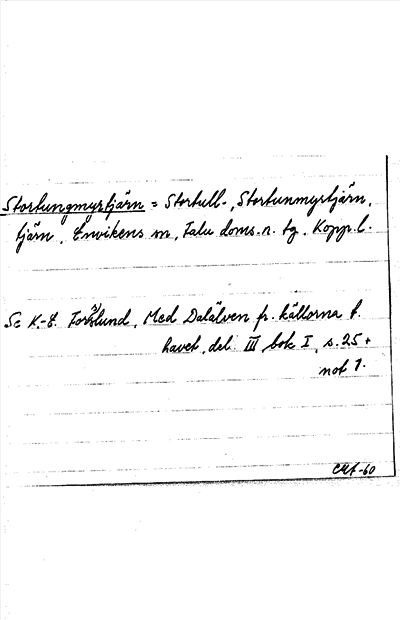 Stortungmyrtjärn = Stortull-, Stortunmyrtjärn,
tjärn, Envikens sn, Falu doms.n. tg. Kopp. l.
Se K.-E. Forsslund, Med Dalälven fr. källorna t.
havet, del III, bok I, s. 25 +
not 1.